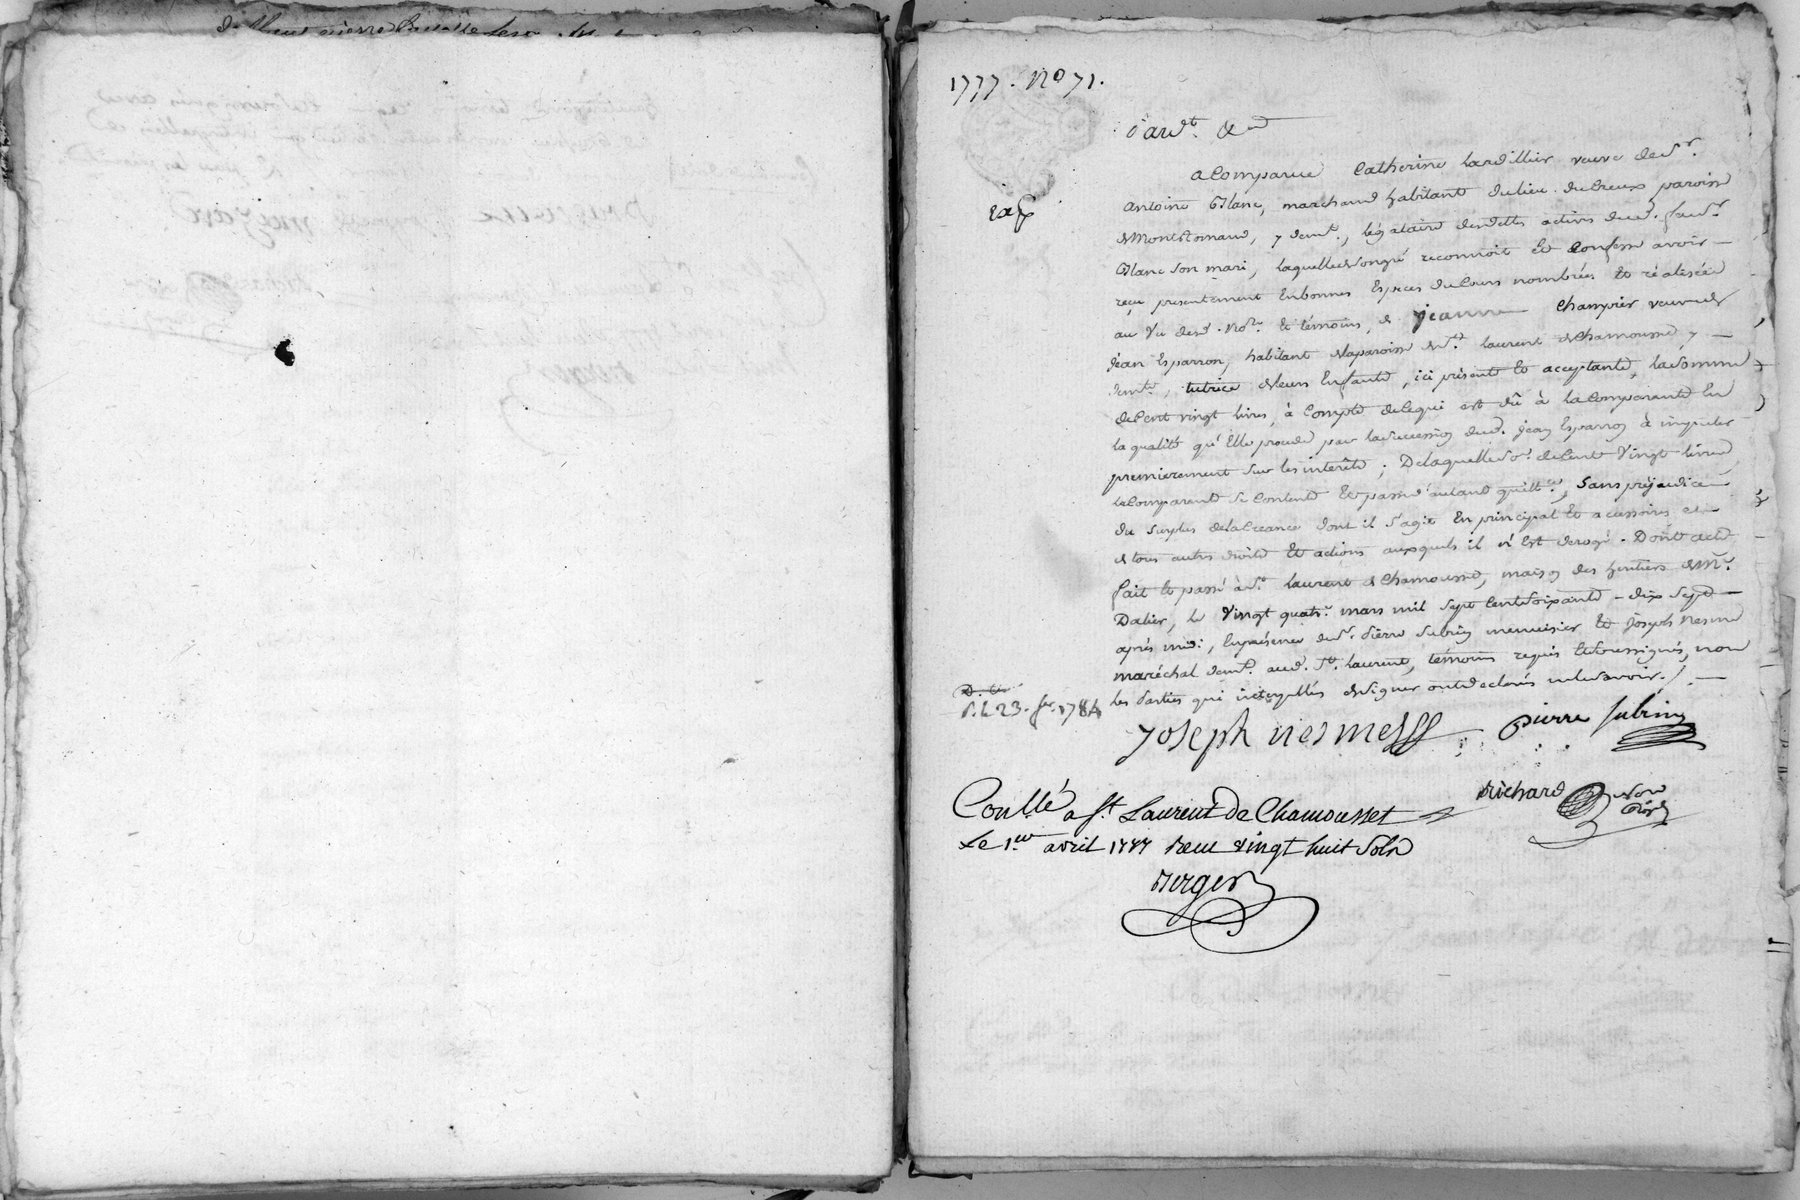 1777. No 71.
Pardt. &a
a Comparue Catherine Lardillier veuve de sr.
antoine Blanc, marchand habitant du lieu du Creux paroisse
de Montromand, y demt., légataire des dettes actives dud. feu sr.
Blanc son mari, laquelle de son gré reconnoit et Confesse avoir
reçu presentement En bonnes Especes du Cours nombrées et réalisées
au vu desd. Nore. et témoins, de jeanne Champier veuve de
jean Esparron, habitant de la paroisse de st. laurent de Chamousset y
demte, tutrice de leurs Enfants, ici présente et acceptante, la somme
de Cent vingt livres, à Compte de Ce qui est dû à la Comparante En
la qualité qu'Elle procede par la succession dud. jean Esparron à imputer
premierement sur les interêts ; De laquelle so. de Cent Vingt livres
la Comparante se Contente et passe quittce, sans préjudice
du surplus de la Creance dont il s'agit En principal et accessoires et
de tous autres droits et actions auxquels il n'Est derogé. Dont acte
fait et passé à st. laurent de Chamousset, maison des heritiers de Mr.
Dalier, le Vingt quatre. mars mil sept Cent soixante-dix sept
après midi, En présence de sr. Pierre Subrin menuisier et joseph Nesme
maréchal demts. aud. st. laurent, témoins requis et soussignés, non
les Parties qui interpellées de signer ont déclaré ne le savoir./.
P. L. 23. fer. 1784
joseph nesme
pierre subrin
Richard
Nore
Conllé a st. Laurent de Chamousset
Le 1er avril 1777 Recu vingt huit sols
Berger